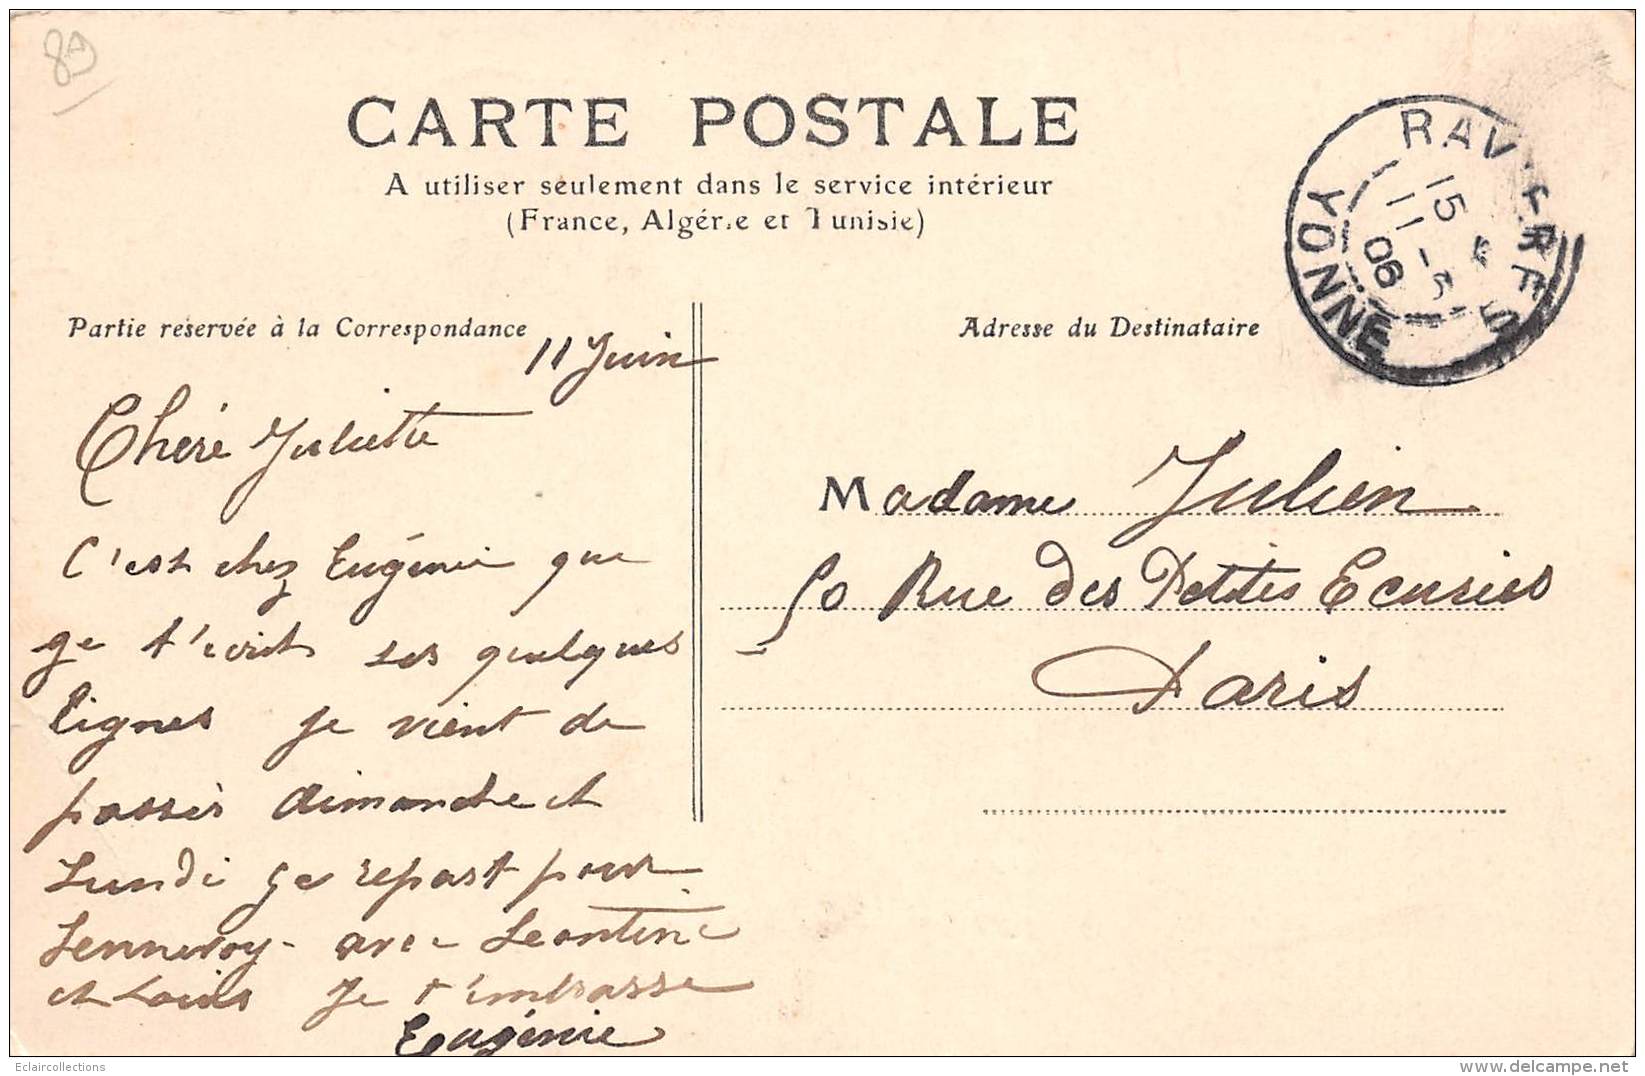 89
CARTE POSTALE
A utiliser seulement dans le service intérieur
(France, Algérie et Tunisie)
RAVIERES
15
11 - 5
06
YONNE
Partie réservée à la Correspondance
Adresse du Destinataire
11 Juin
Chéré Juliette
C'est chez Eugénie que
ge t'ecrit ses quelques
lignes je vient de
passér dimanche et
Lundi ge repast pour
avec Leontine
et Louis Je t'embrasse
Eugénie
Madame Julien
50 Rue des Petites Ecuries
Paris
Eclaircollections
www.delcampe.net